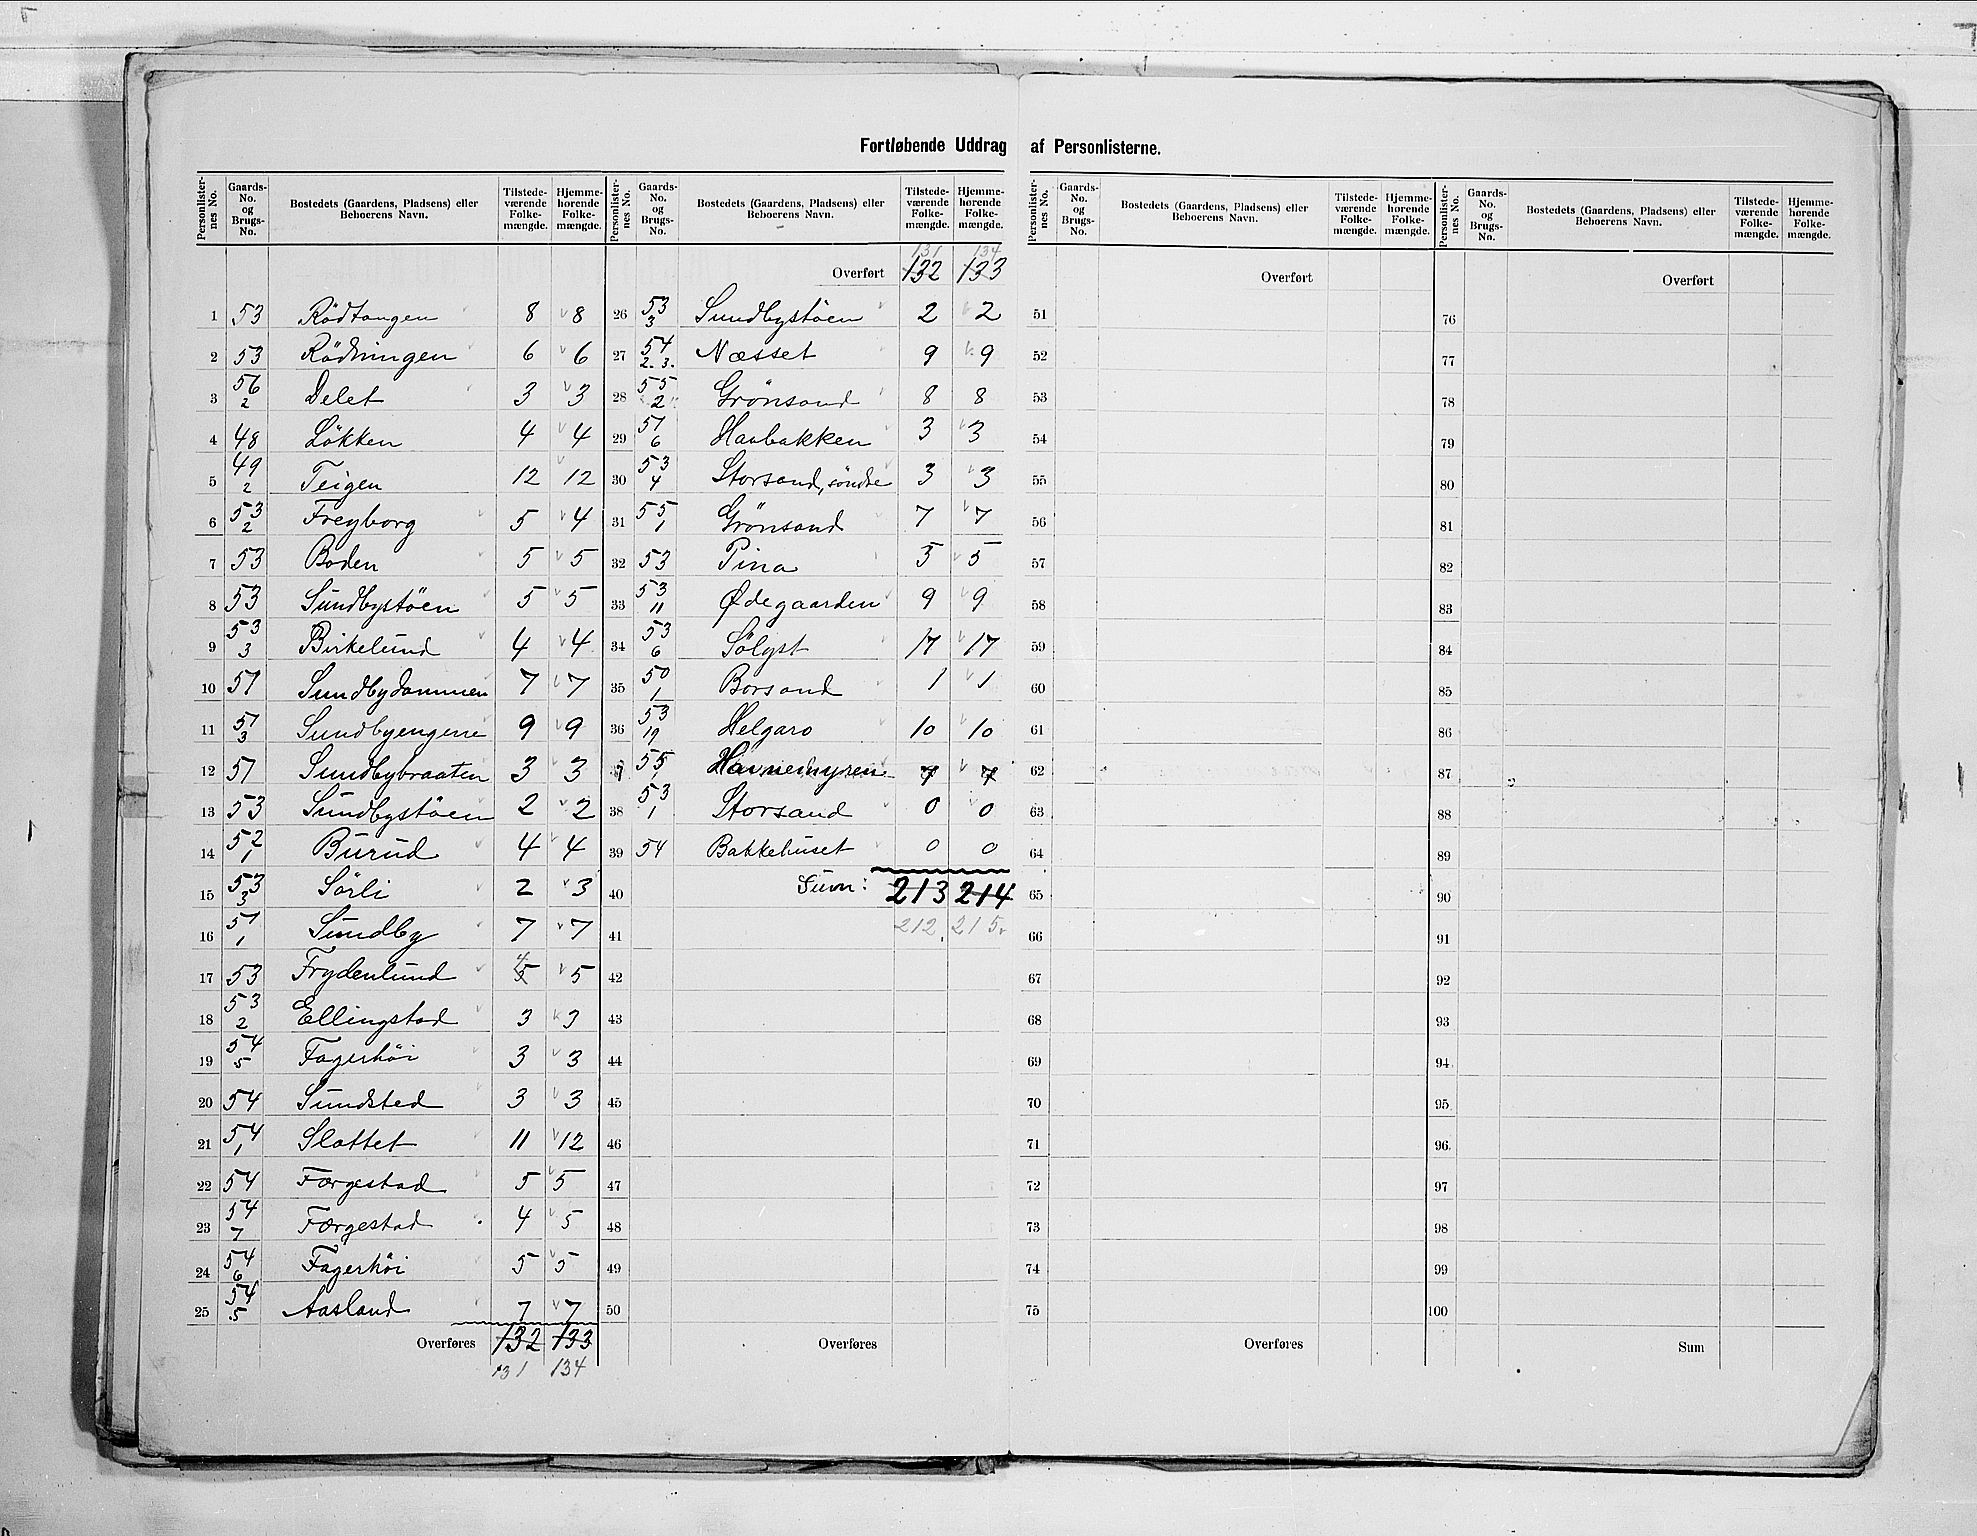 Fortløbende Uddrag af Personlisterne.
Personlister-nes No. | Gaards-No. og Brugs-No. | Bostedets (Gaardens, Pladsens) eller Beboerens Navn. | Tilstede-værende Folke-mængde. | Hjemme-hørende Folke-mængde.
1 53 Rödtangen 8 8
2 53 Rödningen 6 6
3 56/2 Delet 3 3
4 48 Løkken 4 4
5 49/2 Teigen 12 12
6 53/2 Freyborg 5 4
7 53 Boden 5 5
8 53 Sundbystöen 5 5
9 53/3 Birkelund 4 4
10 51 Sundbydammen 7 7
11 51/3 Sundbyengene 9 9
12 51 Sundbybraaten 3 3
13 53 Sundbystöen 2 2
14 52/1 Burud 4 4
15 53/3 Sörli 2 3
16 51/1 Sundby 7 7
17 53 Frydenlund 5 4 5
18 53/2 Ellingstad 3 3
19 54/5 Fagerhöi 3 3
20 54 Sundsted 3 3
21 54/1 Slottet 11 12
22 54 Færgestad 5 5
23 54/7 Færgestad 4 5
24 54/6 Fagerhöi 5 5
25 54/5 Aasland 7 7
Overføres 132 133
131 134
Personlister-nes No. | Gaards-No. og Brugs-No. | Bostedets (Gaardens, Pladsens) eller Beboerens Navn. | Tilstede-værende Folke-mængde. | Hjemme-hørende Folke-mængde.
131 134
Overført 132 133
26 53/3 Sundbystöen 2 2
27 54/2.3. Næsset 9 9
28 55/2 Grönsand 8 8
29 51/6 Haabakken 3 3
30 53/4 Storsand, söndre 3 3
31 55/1 Grönsand 7 7
32 53 Pina 5 5
33 53/11 Ødegaarden 9 9
34 53/6 Sölyst 17 17
35 50/1 Borsand 1 1
36 53/19 Helgaro 10 10
37 55/1 Havnemyren 7 7
38 53/1 Storsand 0 0
39 54 Bakkehuset 0 0
40 Sum: 213 214
41 212. 215.
42
43
44
45
46
47
48
49
50
Overføres
Personlister-nes No. | Gaards-No. og Brugs-No. | Bostedets (Gaardens, Pladsens) eller Beboerens Navn. | Tilstede-værende Folke-mængde. | Hjemme-hørende Folke-mængde.
Overført
51
52
53
54
55
56
57
58
59
60
61
62
63
64
65
66
67
68
69
70
71
72
73
74
75
Overføres
Personlister-nes No. | Gaards-No. og Brugs-No. | Bostedets (Gaardens, Pladsens) eller Beboerens Navn. | Tilstede-værende Folke-mængde. | Hjemme-hørende Folke-mængde.
Overført
76
77
78
79
80
81
82
83
84
85
86
87
88
89
90
91
92
93
94
95
96
97
98
99
100
Sum